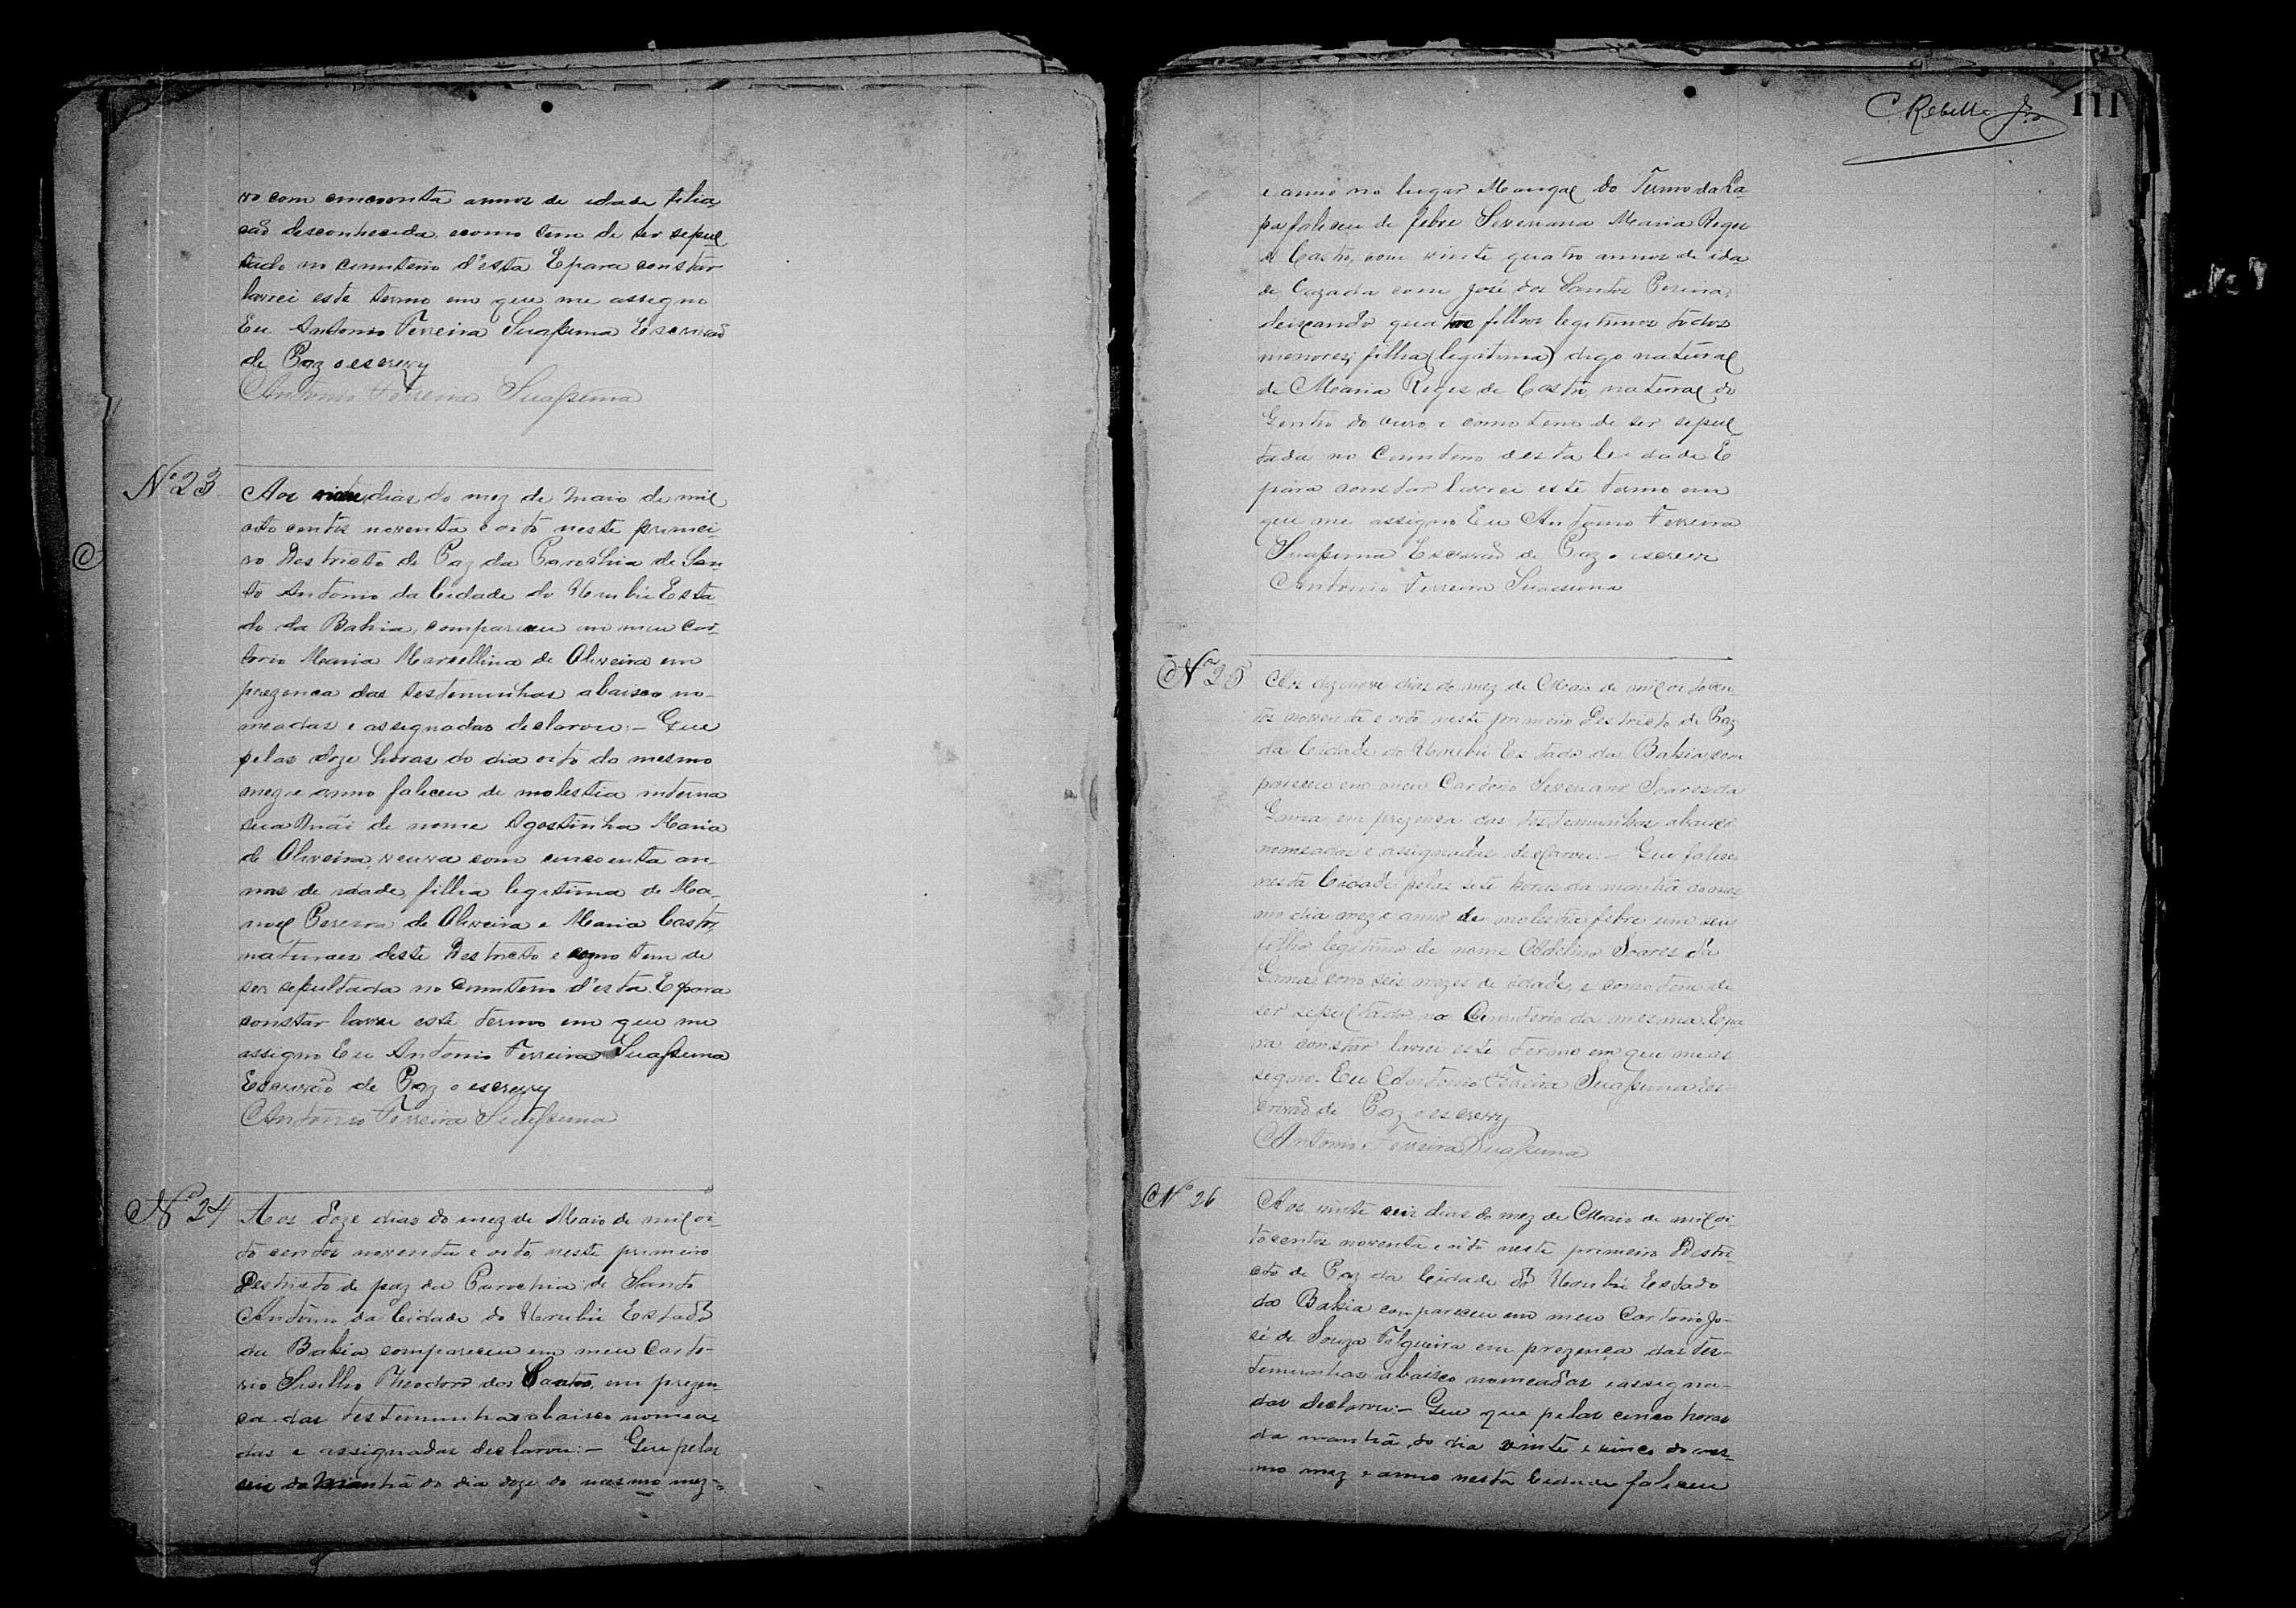 ro com cincoenta annos de idade filia
cão desconhecida, ecomo tem de ser sepul
tado no cemiterio d'esta E para constar
lavrei este termo em que me assigno
Eu Antonio Ferreira Suassuna Escrivaõ
de Paz o escrevy
Antonio Ferreira Suassuna
Nº 23
Aos dias do mez de Maio de mil
oito centos noventa e oito neste primei-
ro Destricto de Paz da Parochia de San
to Antonio da Cidade do Urubú Esta-
do da Bahia, compareceu em meu Car-
torio Maria Marcellina de Oliveira em
prezenca das testemunhas abaixo no-
meadas e assignadas declarou:- Que
pelas doze horas do dia oito do mesmo
mez e anno faleceu de molestia interna
sua Mãi de nome Agostinha Maria
de Oliveira, veuva com cincoenta an-
nos de idade, filha legitima de Ma-
noel Pereira de Oliveira e Maria Castro,
naturaes deste Destricto e como tem de
ser sepultada no Cemiterio d'esta. E para
constar lavrei este termo em que me
assigno Eu Antonio Ferreira Suassuna
Escrivão de Paz o escrevy
Antonio Ferreira Suassuna
Nº 24
Aos doze dias do mez de Maio de mil oi-
to centos noventa e oito, neste primeiro
Destricto de paz da Parochia de Santo
Antonio da Cidade do Urubú Estado
da Bahia compareceu em meu Carto-
rio Theodoro dos Santos, em prezen
ca das testemunhas abaixo nomea
das e assignadas declarou:- Que pelas
seis da Manhã do dia doze do mesmo mez
C. Rebello Jor
111
e anno no lugar Mangal do Termo da La
pa faleceu de febre Severiana Maria Reges
de Castro, com vinte quatro annos de ida
de Cazada com José dos Santos Pereira,
deixando quatro filhos legitimos todos
menores; filha (legitima) digo natural
de Maria Reges de Castro, natural do
Gentio do ouro, e como tem de ser sepul
tada no Cemiterio desta Cidade E
para constar lavrei este termo em
que me assigno Eu Antonio Ferreira
Suassuna Escrivaõ de Paz o escrevi
Antonio Ferreira Suassuna
Nº 25
Aos dezenove dias do mez de Maio de mil oitocen
tos noventa e oito, neste primeiro Destricto de Paz
da Cidade do Urubú Estado da Bahia, com
pareceu em meu Cartorio Severiano Soares da
Gama, em prezença das testemunhas abaixo
nomeadas e assignadas declarou:- Que faleceu
nesta Cidade pelas sete horas da manhã do mes
mo dia mez e anno de molestia febre um seu
filho legitimo de nome Adelino Soares da
Gama, com seis mezes de idade, e como tem de
ser sepultado no Cemiterio da mesma. E pa
ra constar lavrei este termo em que me as
signo. Eu Antonio Ferreira Suassuna Es-
crivaõ de Paz o escrevy
Antonio Ferreira Suassuna
Nº 26
Aos vinte seis dias do mez de Maio de mil oi-
tocentos noventa e oito neste primeiro Destri-
cto de Paz da Cidade do Urubú Estado
da Bahia compareceu em meu Cartorio Jo-
sé de Souza Folgueira em prezença das tes-
temunhas abaixo nomeadas e assigna-
das declarou:- Que que pelas cinco horas
da manhã do dia vinte e cinco do mes-
mo mez e anno nesta Cidade faleceu